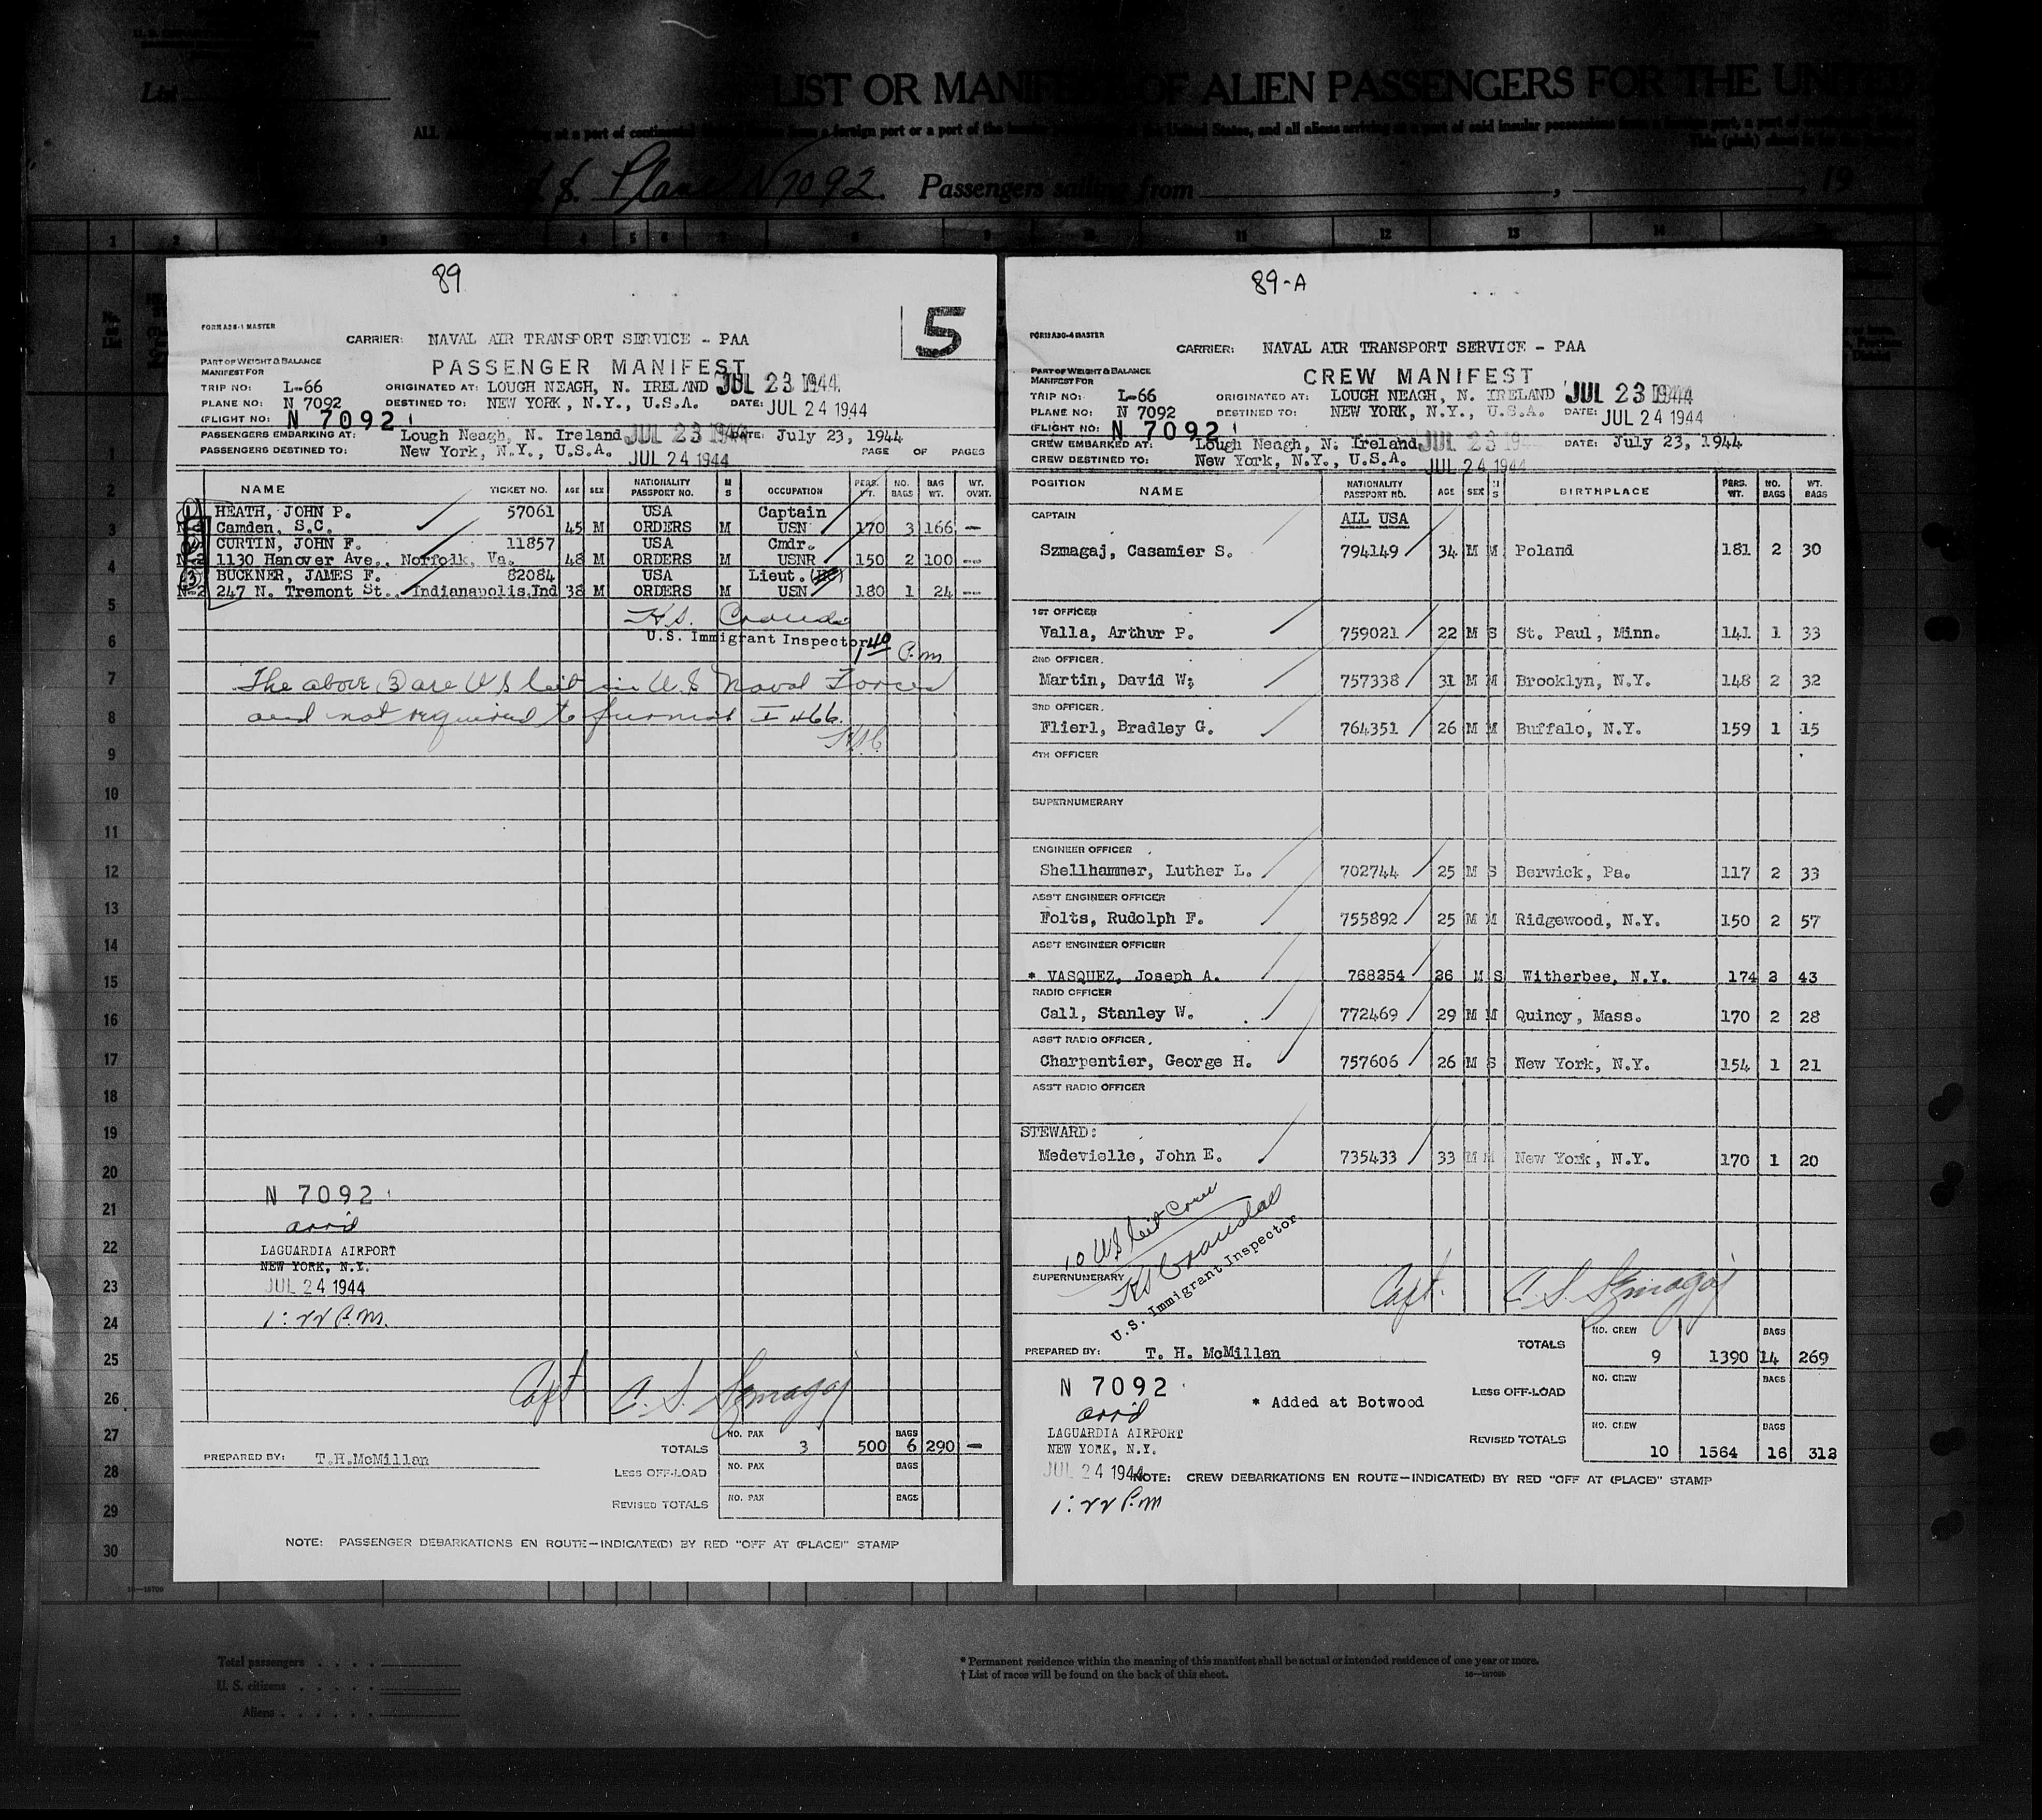 List
LIST OR MANIFEST OF ALIEN PASSENGERS FOR THE UNITED
S.S. Plane N7092 Passengers sailing from , , 19
89
5
FORM A30-1 MASTER
CARRIER: NAVAL AIR TRANSPORT SERVICE - PAA
PART OF WEIGHT & BALANCE
MANIFEST FOR
PASSENGER MANIFEST
TRIP NO: L-66 ORIGINATED AT: LOUGH NEAGH, N. IRELAND JUL 23 1944
PLANE NO: N 7092 DESTINED TO: NEW YORK, N.Y., U.S.A. DATE: JUL 24 1944
(FLIGHT NO: N 7092
PASSENGERS EMBARKING AT: Lough Neagh, N. Ireland JUL 23 1944 DATE: July 23, 1944
PASSENGERS DESTINED TO: New York, N.Y., U.S.A. JUL 24 1944 PAGE OF PAGES
NAME TICKET NO. AGE SEX NATIONALITY PASSPORT NO. M S OCCUPATION PERS. WT. NO. BAGS BAG WT. WT. OVWT.
1 HEATH, JOHN P. 57061 USA Captain
Camden, S.C. 45 M ORDERS M USN 170 3 166 —
CURTIN, JOHN F. 11857 USA Cmdr.
1130 Hanover Ave., Norfolk, Va. 48 M ORDERS M USNR 150 2 100 --
3 BUCKNER, JAMES F. 82084 USA Lieut.
N-2 247 N. Tremont St., Indianapolis,Ind 38 M ORDERS M USN 180 1 24 --
U.S. Immigrant Inspector 1 40 P.m
The above 3 are US Cit in U.S Naval Forces
and not required to furnish I 466.
HSC
N 7092
arrd
LAGUARDIA AIRPORT
NEW YORK, N.Y.
JUL 24 1944
1:22 P.M.
Capt C. S. Szmagaj
PREPARED BY: T.H.McMillan
TOTALS NO. PAX 3 500 BAGS 6 290 —
LESS OFF-LOAD NO. PAX BAGS
REVISED TOTALS NO. PAX BAGS
NOTE: PASSENGER DEBARKATIONS EN ROUTE—INDICATE(D) BY RED "OFF AT (PLACE)" STAMP
89-A
FORM A30-4 MASTER
CARRIER: NAVAL AIR TRANSPORT SERVICE - PAA
PART OF WEIGHT & BALANCE
MANIFEST FOR
CREW MANIFEST
TRIP NO: L-66 ORIGINATED AT: LOUGH NEAGH, N. IRELAND JUL 23 1944
PLANE NO: N 7092 DESTINED TO: NEW YORK, N.Y., U.S.A. DATE: JUL 24 1944
(FLIGHT NO: N 7092
CREW EMBARKED AT: Lough Neagh, N. Ireland JUL 23 194 DATE: July 23, 1944
CREW DESTINED TO: New York, N.Y., U.S.A. JUL 24 1944
POSITION NAME NATIONALITY PASSPORT NO. AGE SEX M S BIRTHPLACE PERS. WT. NO. BAGS WT. BAGS
CAPTAIN ALL USA
Szmagaj, Casamier S. 794149 34 M M Poland 181 2 30
1ST OFFICER
Valla, Arthur P. 759021 22 M S St. Paul, Minn. 141 1 33
2ND OFFICER
Martin, David W. 757338 31 M M Brooklyn, N.Y. 148 2 32
3RD OFFICER
Flierl, Bradley G. 764351 26 M M Buffalo, N.Y. 159 1 15
4TH OFFICER
SUPERNUMERARY
ENGINEER OFFICER
Shellhammer, Luther L. 702744 25 M S Berwick, Pa. 117 2 33
ASS'T ENGINEER OFFICER
Folts, Rudolph F. 755892 25 M M Ridgewood, N.Y. 150 2 57
ASS'T ENGINEER OFFICER
* VASQUEZ, Joseph A. 768354 26 M S Witherbee, N.Y. 174 2 43
RADIO OFFICER
Call, Stanley W. 772469 29 M M Quincy, Mass. 170 2 28
ASS'T RADIO OFFICER
Charpentier, George H. 757606 26 M S New York, N.Y. 154 1 21
ASS'T RADIO OFFICER
STEWARD:
Medevielle, John E. 735433 33 M M New York, N.Y. 170 1 20
10 US Cit Crew
U.S. Immigrant Inspector
SUPERNUMERARY
Capt. C. S. Szmagaj
TOTALS NO. CREW 9 1390 BAGS 14 269
PREPARED BY: T. H. McMillan
LESS OFF-LOAD NO. CREW BAGS
REVISED TOTALS NO. CREW 10 1564 BAGS 16 312
N 7092
* Added at Botwood
arrd
LAGUARDIA AIRPORT
NEW YORK, N.Y.
JUL 24 1944
NOTE: CREW DEBARKATIONS EN ROUTE—INDICATE(D) BY RED "OFF AT (PLACE)" STAMP
1:22 P.M
Total passengers
U. S. citizens
Aliens
* Permanent residence within the meaning of this manifest shall be actual or intended residence of one year or more.
† List of races will be found on the back of this sheet.